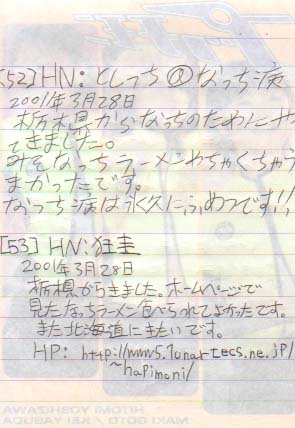 [52] HN: としっち@なっち病
2001年3月28日
栃木県からなっちのためにやっ
てきました。
みそなっちラーメンめちゃくちゃう
まかったです。
なっち病は永久にふめつです!!
[53] HN: 狂圭
2001年3月28日
栃木県からきました。ホームページで
見たなっちラーメン食べられてよかったです。
また北海道にきたいです。
HP: http://www5.1onartecs.ne.jp/
~hapimoni/
HITOMI YOSHIZAWA
MAKI GOTO / KEI YASUDA